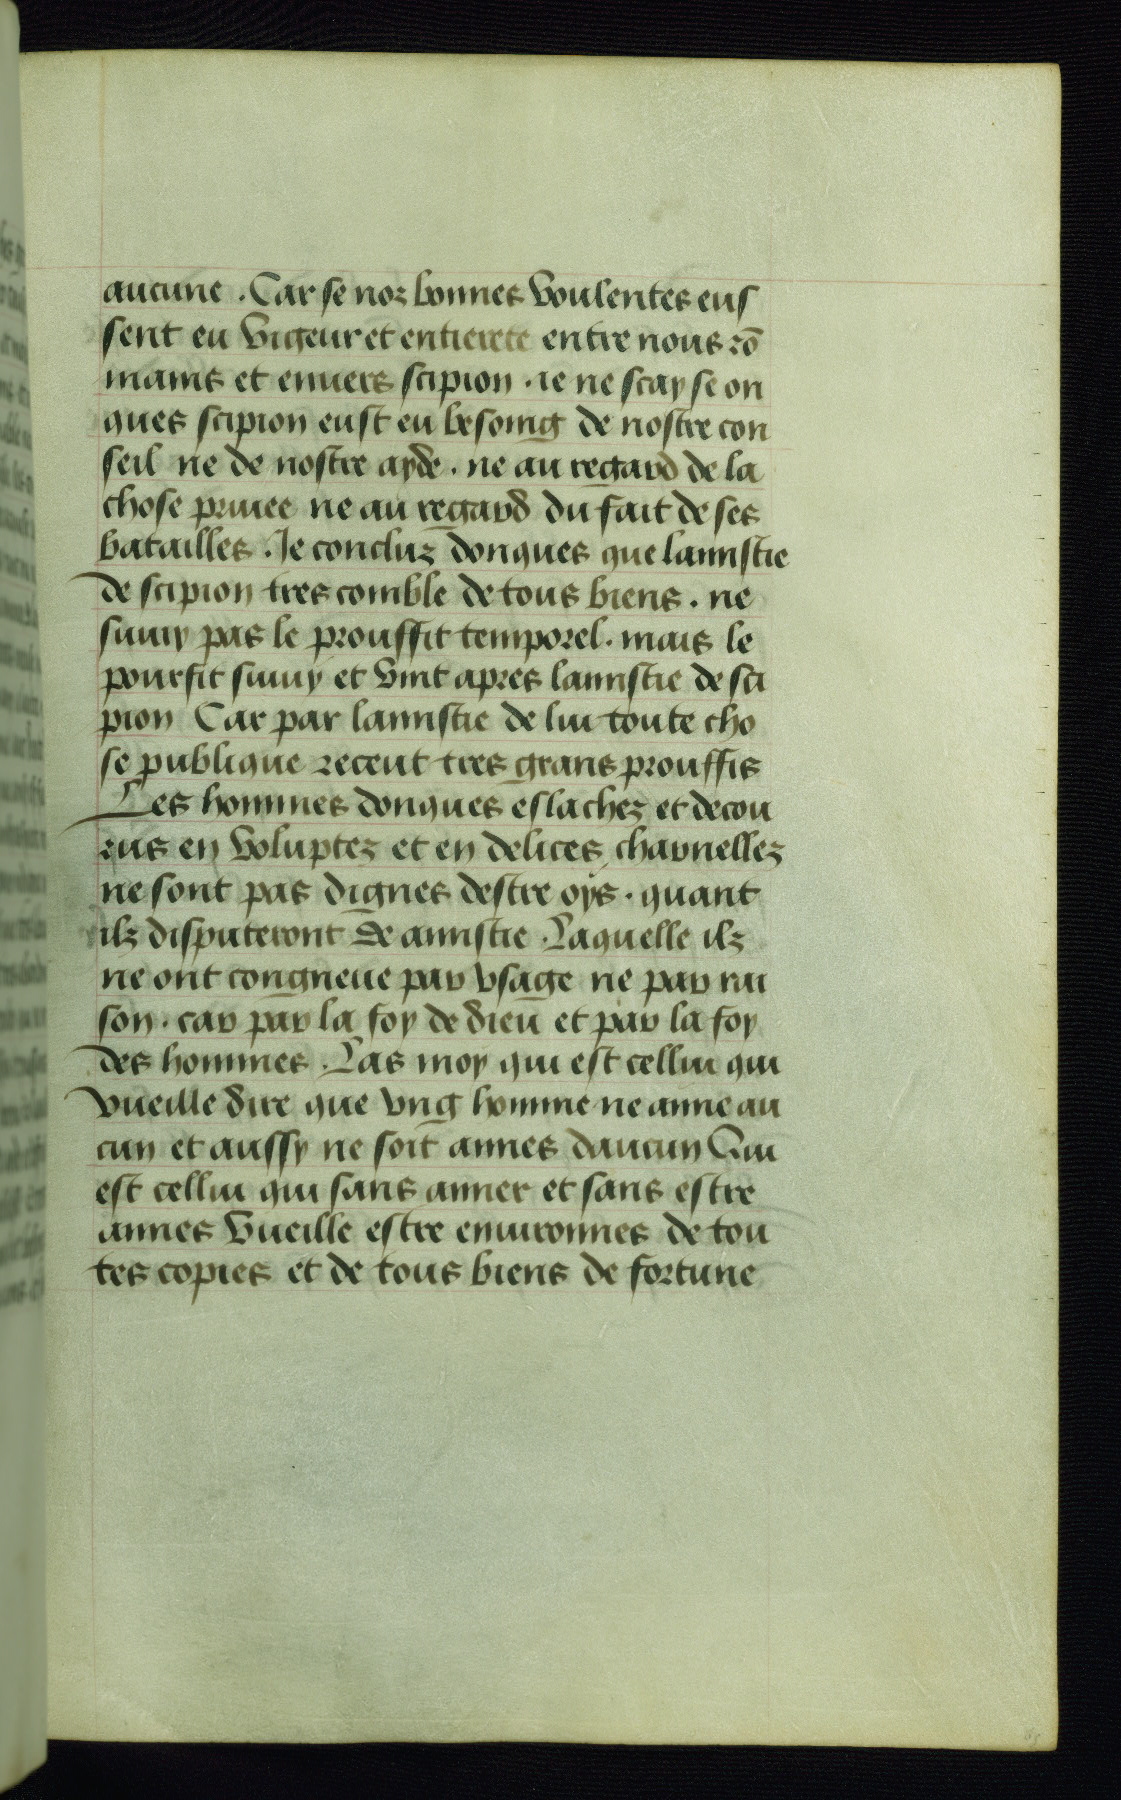 aucune . Car se noz bonnes voulentes eus
sent eu vigeur et entierete entre nous rō
mains et enuers scipion . ie ne scay se on
ques scipion eust eu besoing de nostre con
seil ne de nostre ayde . ne au regard de la
chose priuee ne au regard du fait de ses
batailles . Je concluz donques que lamistie
de scipion tres comble de tous biens . ne
suiuy pas le prouffit temporel . mais le
pourfit suiuy et vint apres lamistie de sci
pion Car par lamistie de lui toute cho
se publique receut tres grans prouffis
Les hommes donques eslachez et decou
rus en voluptez et en delices charnellez
ne sont pas dignes destre oÿs . quant
ilz disputeront de amistie . Laquelle ilz
ne ont congneue par vsage ne par rai
son . car par la foy de dieu et par la foy
des hommes . Las moy qui est cellui qui
vueille dire que vng homme ne aime au
cun et aussy ne soit aimes daucun Qui
est cellui qui sans aimer et sans estre
aimes vueille estre enuironnes de tou
tes copies et de tous biens de fortune